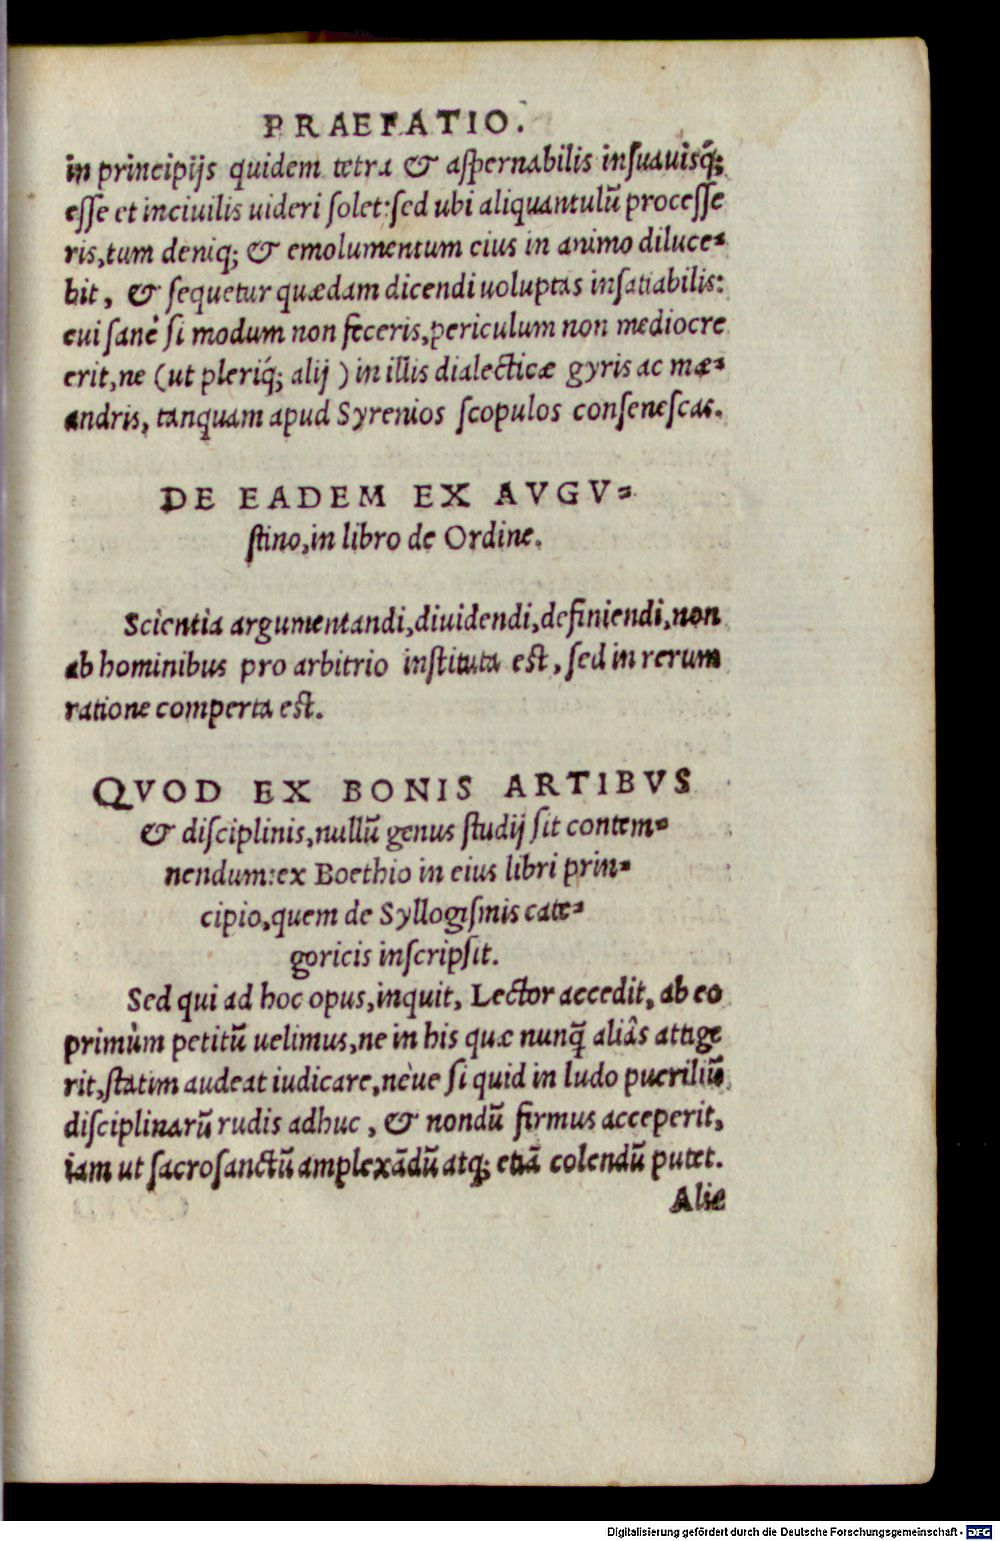 PRAEFATIO.
in principijs quidem tetra & aspernabilis insuauisq́;
esse et inciuilis uideri solet: sed ubi aliquantulũ processe
ris, tum deniq; & emolumentum eius in animo diluce-
bit, & sequetur quædam dicendi uoluptas insatiabilis:
cui sanè si modum non feceris, periculum non mediocre
erit, ne (ut pleriq́; alij) in illis dialecticæ gyris ac mæ-
andris, tanquam apud Syrenios scopulos consenescas.
DE EADEM EX AVGV-
stino, in libro de Ordine.
Scientia argumentandi, diuidendi, definiendi, non
ab hominibus pro arbitrio instituta est, sed in rerum
ratione comperta est.
QVOD EX BONIS ARTIBVS
& disciplinis, nullũ genus studij sit contem-
nendum: ex Boethio in eius libri prin-
cipio, quem de Syllogismis cate-
goricis inscripsit.
Sed qui ad hoc opus, inquit, Lector accedit, ab eo
primùm petitũ uelimus, ne in his quæ nunq̃ aliâs attige
rit, statim audeat iudicare, nèue si quid in ludo puerilιũ
disciplinarũ rudis adhuc, & nondũ firmus acceperit,
iam ut sacrosanctũ amplexãdũ atq; etiã colendũ putet.
Alie
Digitalisierung gefördert durch die Deutsche Forschungsgemeinschaft - DFG